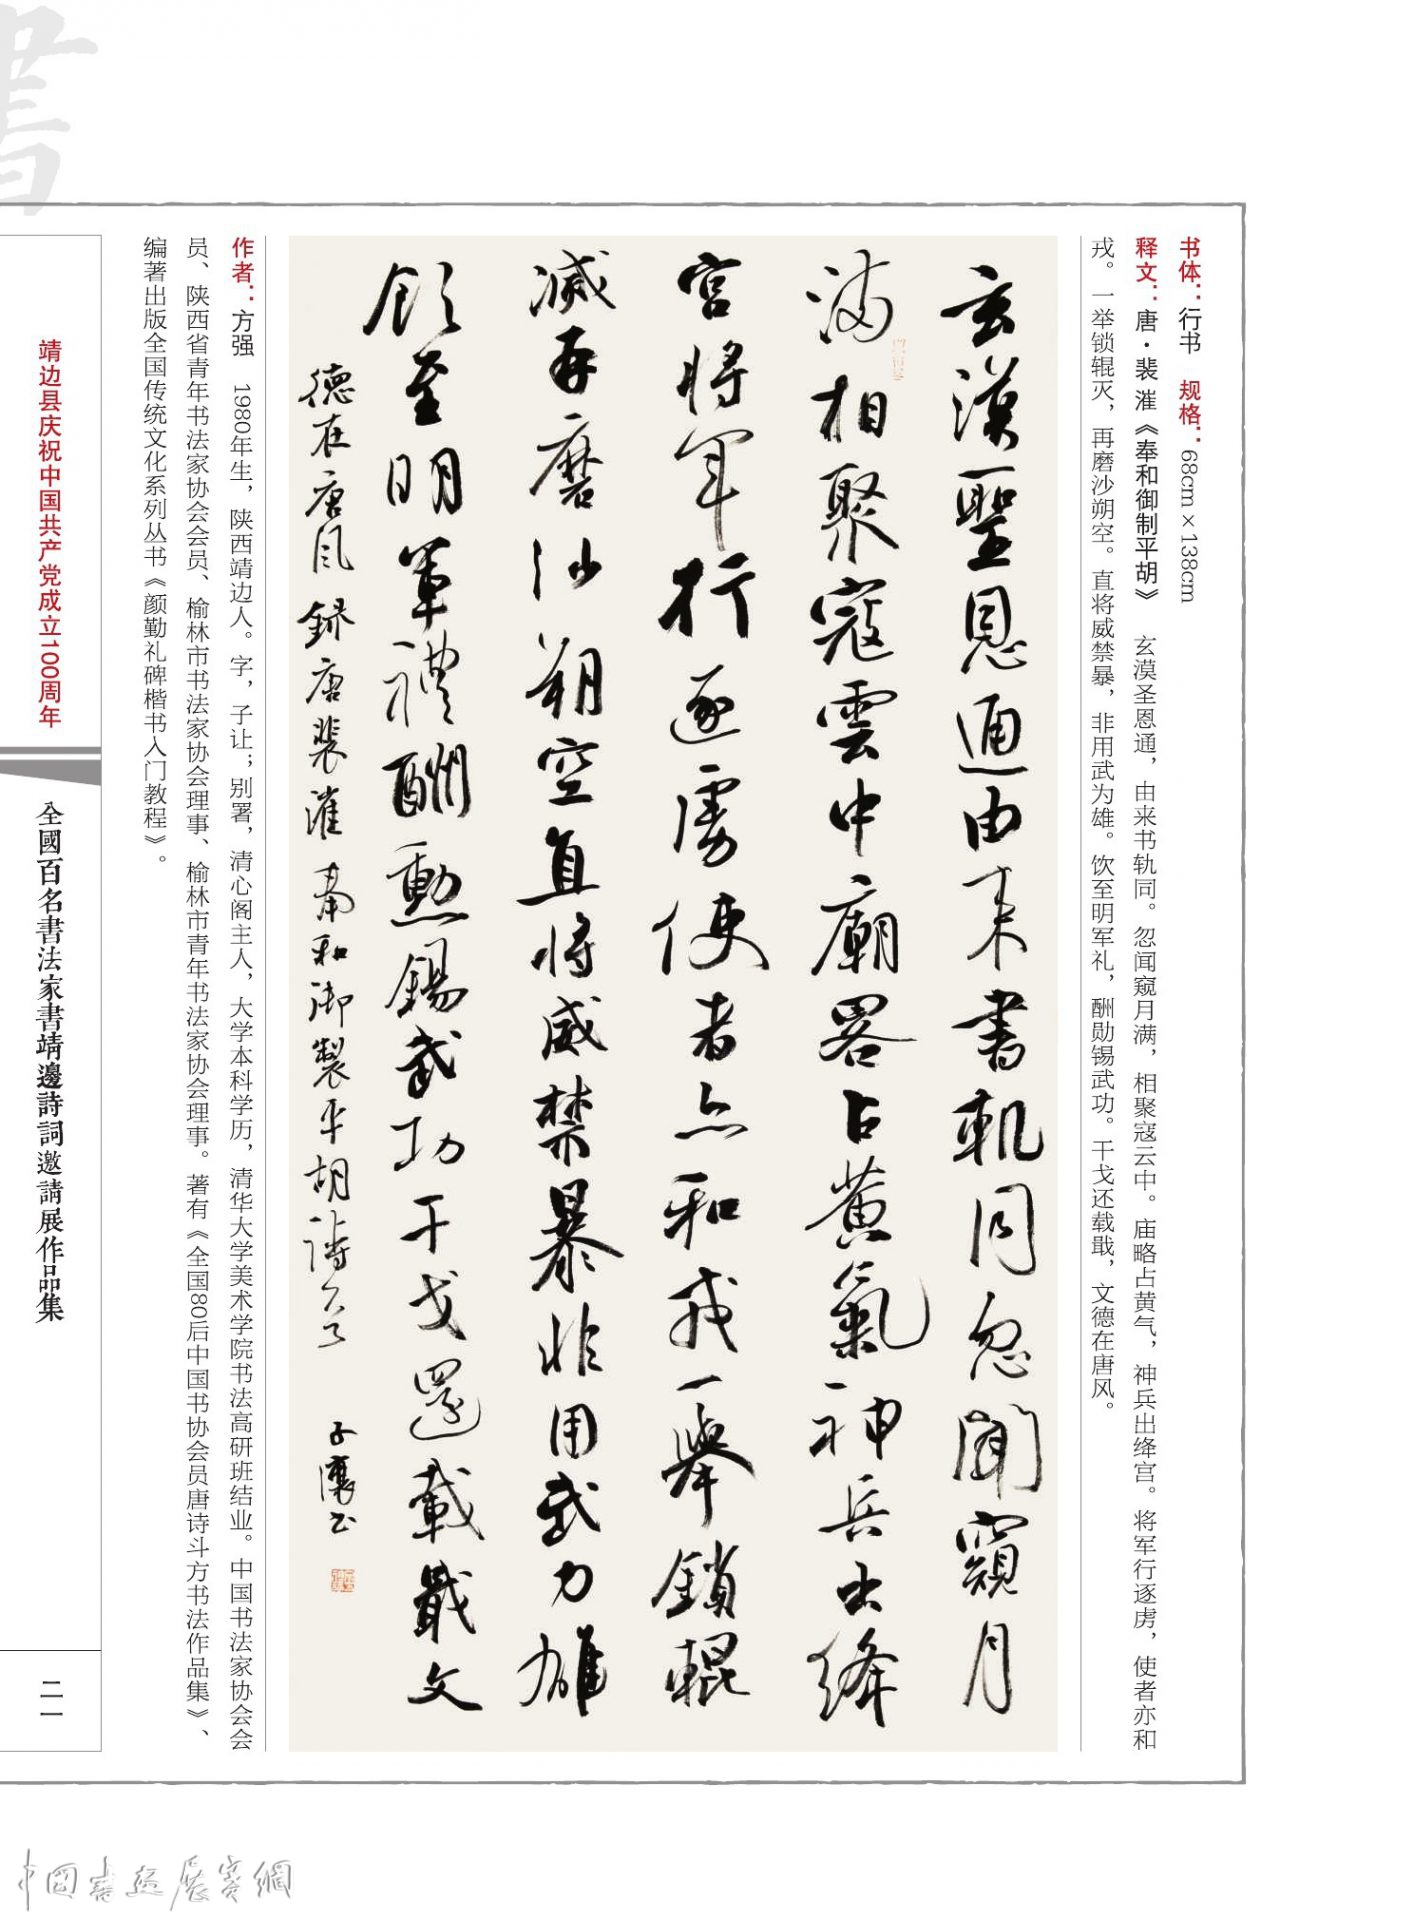 書
书体：行书　规格：68cm×138cm
释文：唐·裴漼《奉和御制平胡》　玄漠圣恩通，由来书轨同。忽闻窥月满，相聚寇云中。庙略占黄气，神兵出绛宫。将军行逐虏，使者亦和
戎。一举锁辊灭，再磨沙朔空。直将威禁暴，非用武为雄。饮至明军礼，酬勋锡武功。干戈还载戢，文德在唐风。
玄漠聖恩通由来書軌同忽聞窺月
满相聚寇雲中廟畧占黄氣神兵出絳
宫將军行逐虜使者亦和戎一舉鎖輥
滅再磨沙朔空直將威禁暴非用武为雄
飲至明軍禮酬勳錫武功干戈還載戢文
德在唐风 録唐裴漼奉和御製平胡詩一首 子讓书
作者：方强　1980年生，陕西靖边人。字，子让；别署，清心阁主人，大学本科学历，清华大学美术学院书法高研班结业。中国书法家协会会
员、陕西省青年书法家协会会员、榆林市书法家协会理事、榆林市青年书法家协会理事。著有《全国80后中国书协会员唐诗斗方书法作品集》、
编著出版全国传统文化系列丛书《颜勤礼碑楷书入门教程》。
靖边县庆祝中国共产党成立100周年
全國百名書法家書靖邊詩詞邀請展作品集
二一
中國書画展賽網